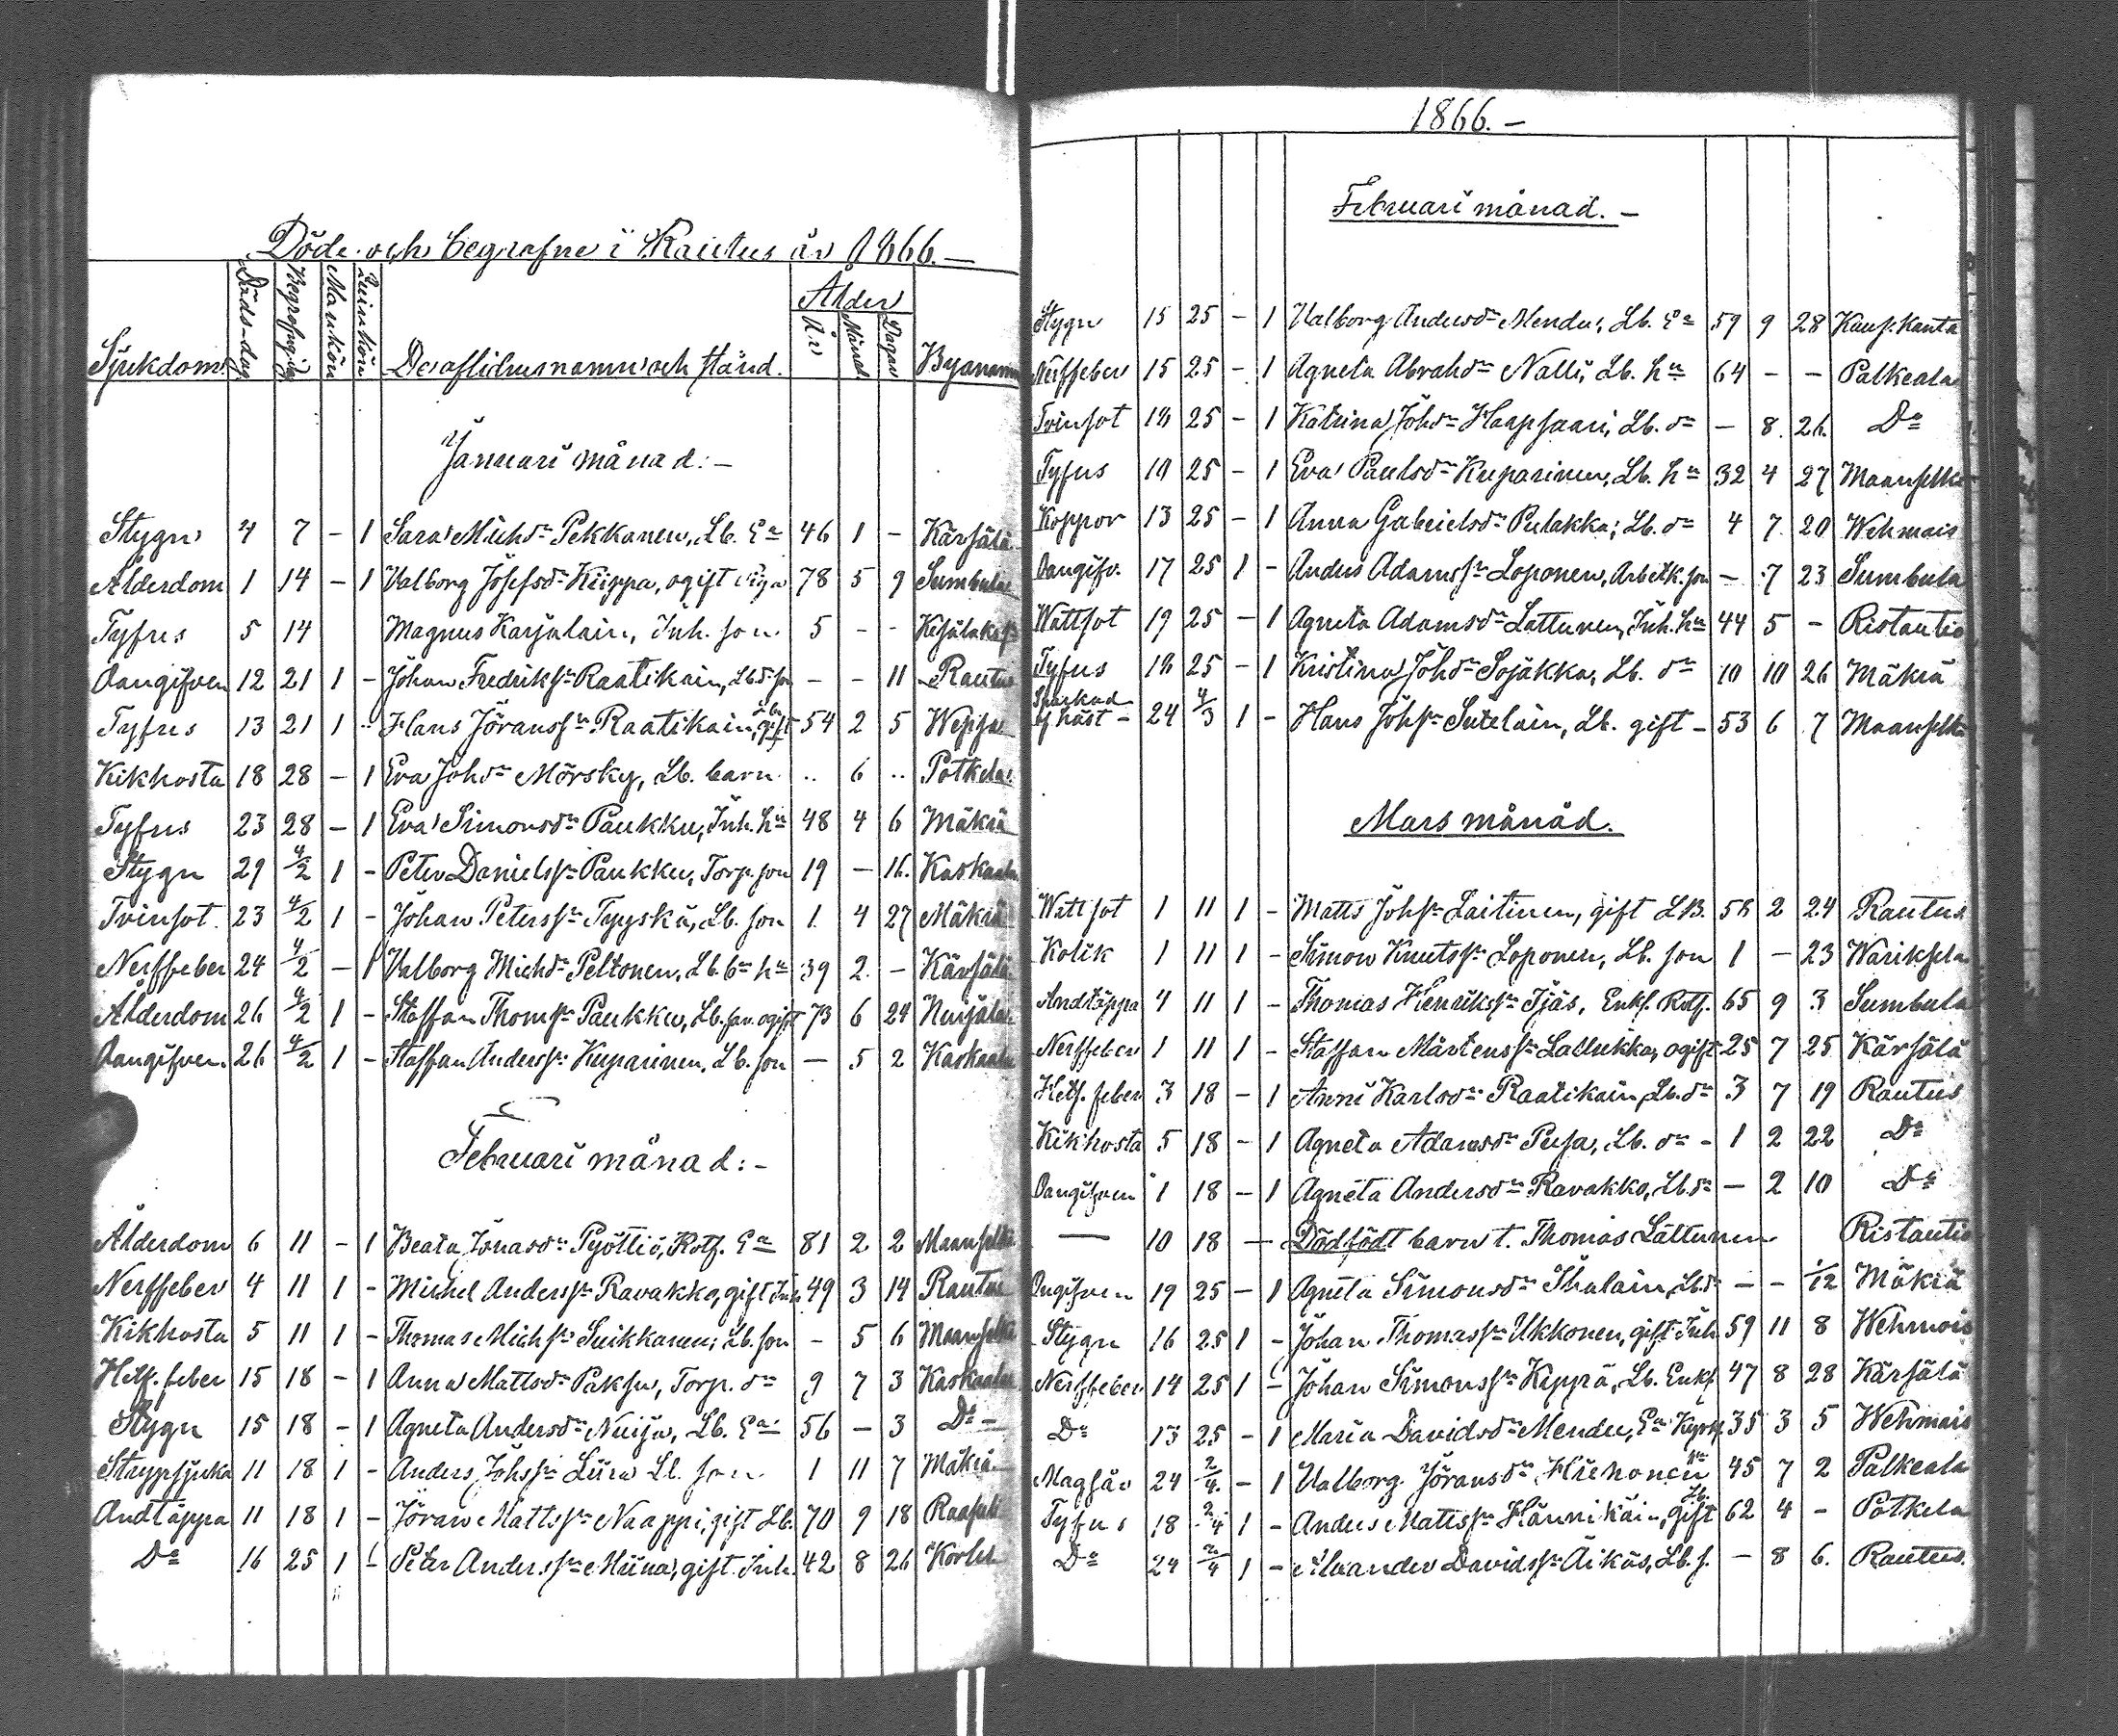 Döde och begrafne i Rautus år 1866.—
Sjukdom. Döds-dag Begrafnings dag Mankön Quinkön De aflidnes namn och stånd. Ålder År Månad Dagar Byanamn
Januari månad:—
Stygn 4 7 – 1 Sara Michsdr Pekkanen, Lb. Ea 46 1 – Kärsälä
Ålderdom 1 14 – 1 Valborg Josefsdr Kiippa, ogift piga 78 5 9 Sumbula
Tyfus 5 14 Magnus Karjalain, Inh. son 5 – –
Oangifven 12 21 1 – Johan Fredriksn Raatikain, Lb.dr son – – 11 Rautus
Tyfus 13 21 1 – Hans Göranssn Raatikain, Lb. gift 54 2 5 Wepsa
Kikhosta 18 28 – 1 Eva Johdr Mörsky, Lb. barn .. 6 .. Potkela
Tyfus 23 28 – 1 Eva Simonsdr Paukku, Inh. hu 48 4 6 Mäkiä
Stygn 29 4/2 1 – Peter Danielssn Paukku, Torp. son 19 – 16. Kaskaala
Tvinsot. 23 4/2 1 – Johan Peterssn Tyyskä, Lb. son 1 4 27 Mäkiä
Nerffeber 24 4/2 – 1 Valborg Michdr Peltonen, Lb. hu 39 2 – Kärsälä
Ålderdom 26 4/2 1 – Staffan Thomsn Paukku, Lb. son ogift 73 6 24 Nuijala
Oangifven. 26 4/2 1 – Staffan Anderssn Kuparinen, Lb. son — 5 2 Kaskaala
Februari månad:—
Ålderdom 6 11 – 1 Beata Jonasdr Pyöttiö, Rotf. Ea 81 2 2 Maanselkä
Nerffeber 4 11 1 – Michel Anderssn Ravakko, gift Inh 49 3 14 Rautus
Kikhosta 5 11 1 – Thomas Michsn Suikkanen, Lb. son – 5 6 Maanselkä
Hetf. feber 15 18 – 1 Anna Mattsdr Paksu, Torp. dr 9 7 3 Kaskaala
Stygn 15 18 – 1 Agneta Andersdr Nuija, Lb. Ea 56 – 3 Do –
Strypsjuka 11 18 1 – Anders Johssn Liira Lb. son 1 11 7 Mäkiä
Andtäppa 11 18 1 – Jöran Mattssn Naappi, gift Lb. 70 9 18 Raasuli
Do 16 25 1 – Peter Anderssn Miina, gift Inh. 42 8 26 Korlee
1866.—
Februari månad.—
Stygn 15 25 – 1 Valborg Andersdr Mendu, Lb. Ea 59 9 28
Nerffeber 15 25 – 1 Agneta Abrahdr Nalli, Lb. hu 64 – – Palkeala
Tvinsot 18 25 – 1 Katrina Johdr Haapsaari, Lb. dr – 8 26 Do
Tyfus 10 25 – 1 Eva Paulsdr Kuparinen, Lb. hu 32 4 27 Maanselkä
Koppor 13 25 – 1 Anna Gabrielsdr Pulakka, Lb. dr 4 7 20 Wehmais
Oangifv. 17 25 1 – Anders Adamssn Loponen, Arbetk. son – 7 23 Sumbula
Wattsot 19 25 – 1 Agneta Adamsdr Lattunen, Inh. hu 44 5 – Ristautio
Tyfus 18 25 – 1 Kristina Johdr Sojakka, Lb. dr 10 10 26 Mäkiä
Sparkad af häst – 24 4/3 1 – Hans Johsn Sutelain, Lb. gift – 53 6 7 Maanselkä
Mars månad.
Wattsot 1 11 1 – Matts Johsn Laitinen, gift LB. 58 2 24 Rautus
Kolik 1 11 1 – Simon Knutssn Loponen, Lb. son 1 – 23 Warikselä
Andtäppa 4 11 1 – Thomas Henrikssn Ijäs, Enkl. Rotf. 65 9 3 Sumbula
Nerffeber 1 11 1 – Staffan Mårtenssn Lallukka, ogift 25 7 25 Kärsälä
Hetf. feber 3 18 – 1 Anni Karlsdr Raatikain, Lb. dr 3 7 19 Rautus
Kikhosta 5 18 – 1 Agneta Adamsdr Pusa, Lb. dr – 1 2 22 Do
Oangifven 1 18 – 1 Agneta Andersdr Ravakko, Lb. dr – 2 10 Do
— 10 18 — Dödfödt barn t. Thomas Lattunen Ristautio
Ongifven 19 25 – 1 Agneta Simonsdr Ihalain, Lb. dr – – 1/12 Mäkiä
Stygn 16 25 1 – Johan Thomassn Ukkonen, gift Inh 59 11 8 Wehmais
Nerffeber 14 25 1 – Johan Simonssn Kippä, Lb. Enkl. 47 8 28 Kärsälä
Do 13 25 – 1 Maria Davidsdr Mendu, Ea 35 3 5 Wehmais
Magsår 24 2/4 – 1 Valborg Göransdr Hiehonen 45 7 2 Palkeala
Tyfus 18 2/4 1 – Anders Mattssn Hännikäin, Lb. gift 62 4 – Potkela
Do 24 2/4 1 – Alexander Davidssn Äikäs, Lb. s. – 8 6. Rautus.